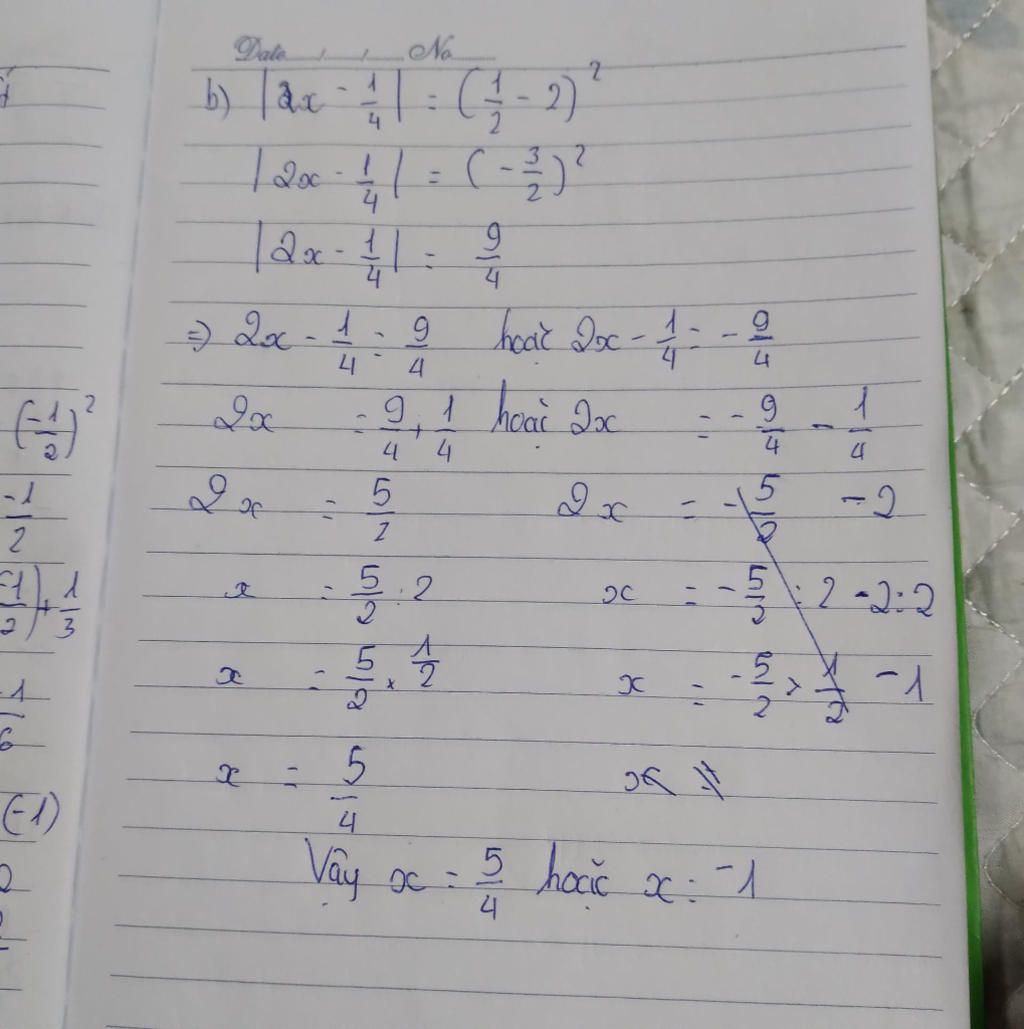 Date , , No
b) |2x - 1/4| = (1/2 - 2)²
|2x - 1/4| = (-3/2)²
|2x - 1/4| = 9/4
=> 2x - 1/4 = 9/4 hoặc 2x - 1/4 = -9/4
2x = 9/4 + 1/4 hoặc 2x = -9/4 - 1/4
2x = 5/2 2x = -5/2 -2
x = 5/2 : 2 x = -5/2 : 2 -2:2
x = 5/2 × 1/2 x = -5/2 × 1/2 -1
x = 5/4 x
Vậy x = 5/4 hoặc x = -1
(-1/2)²
-1/2
-1/2) + 1/3
(-1)